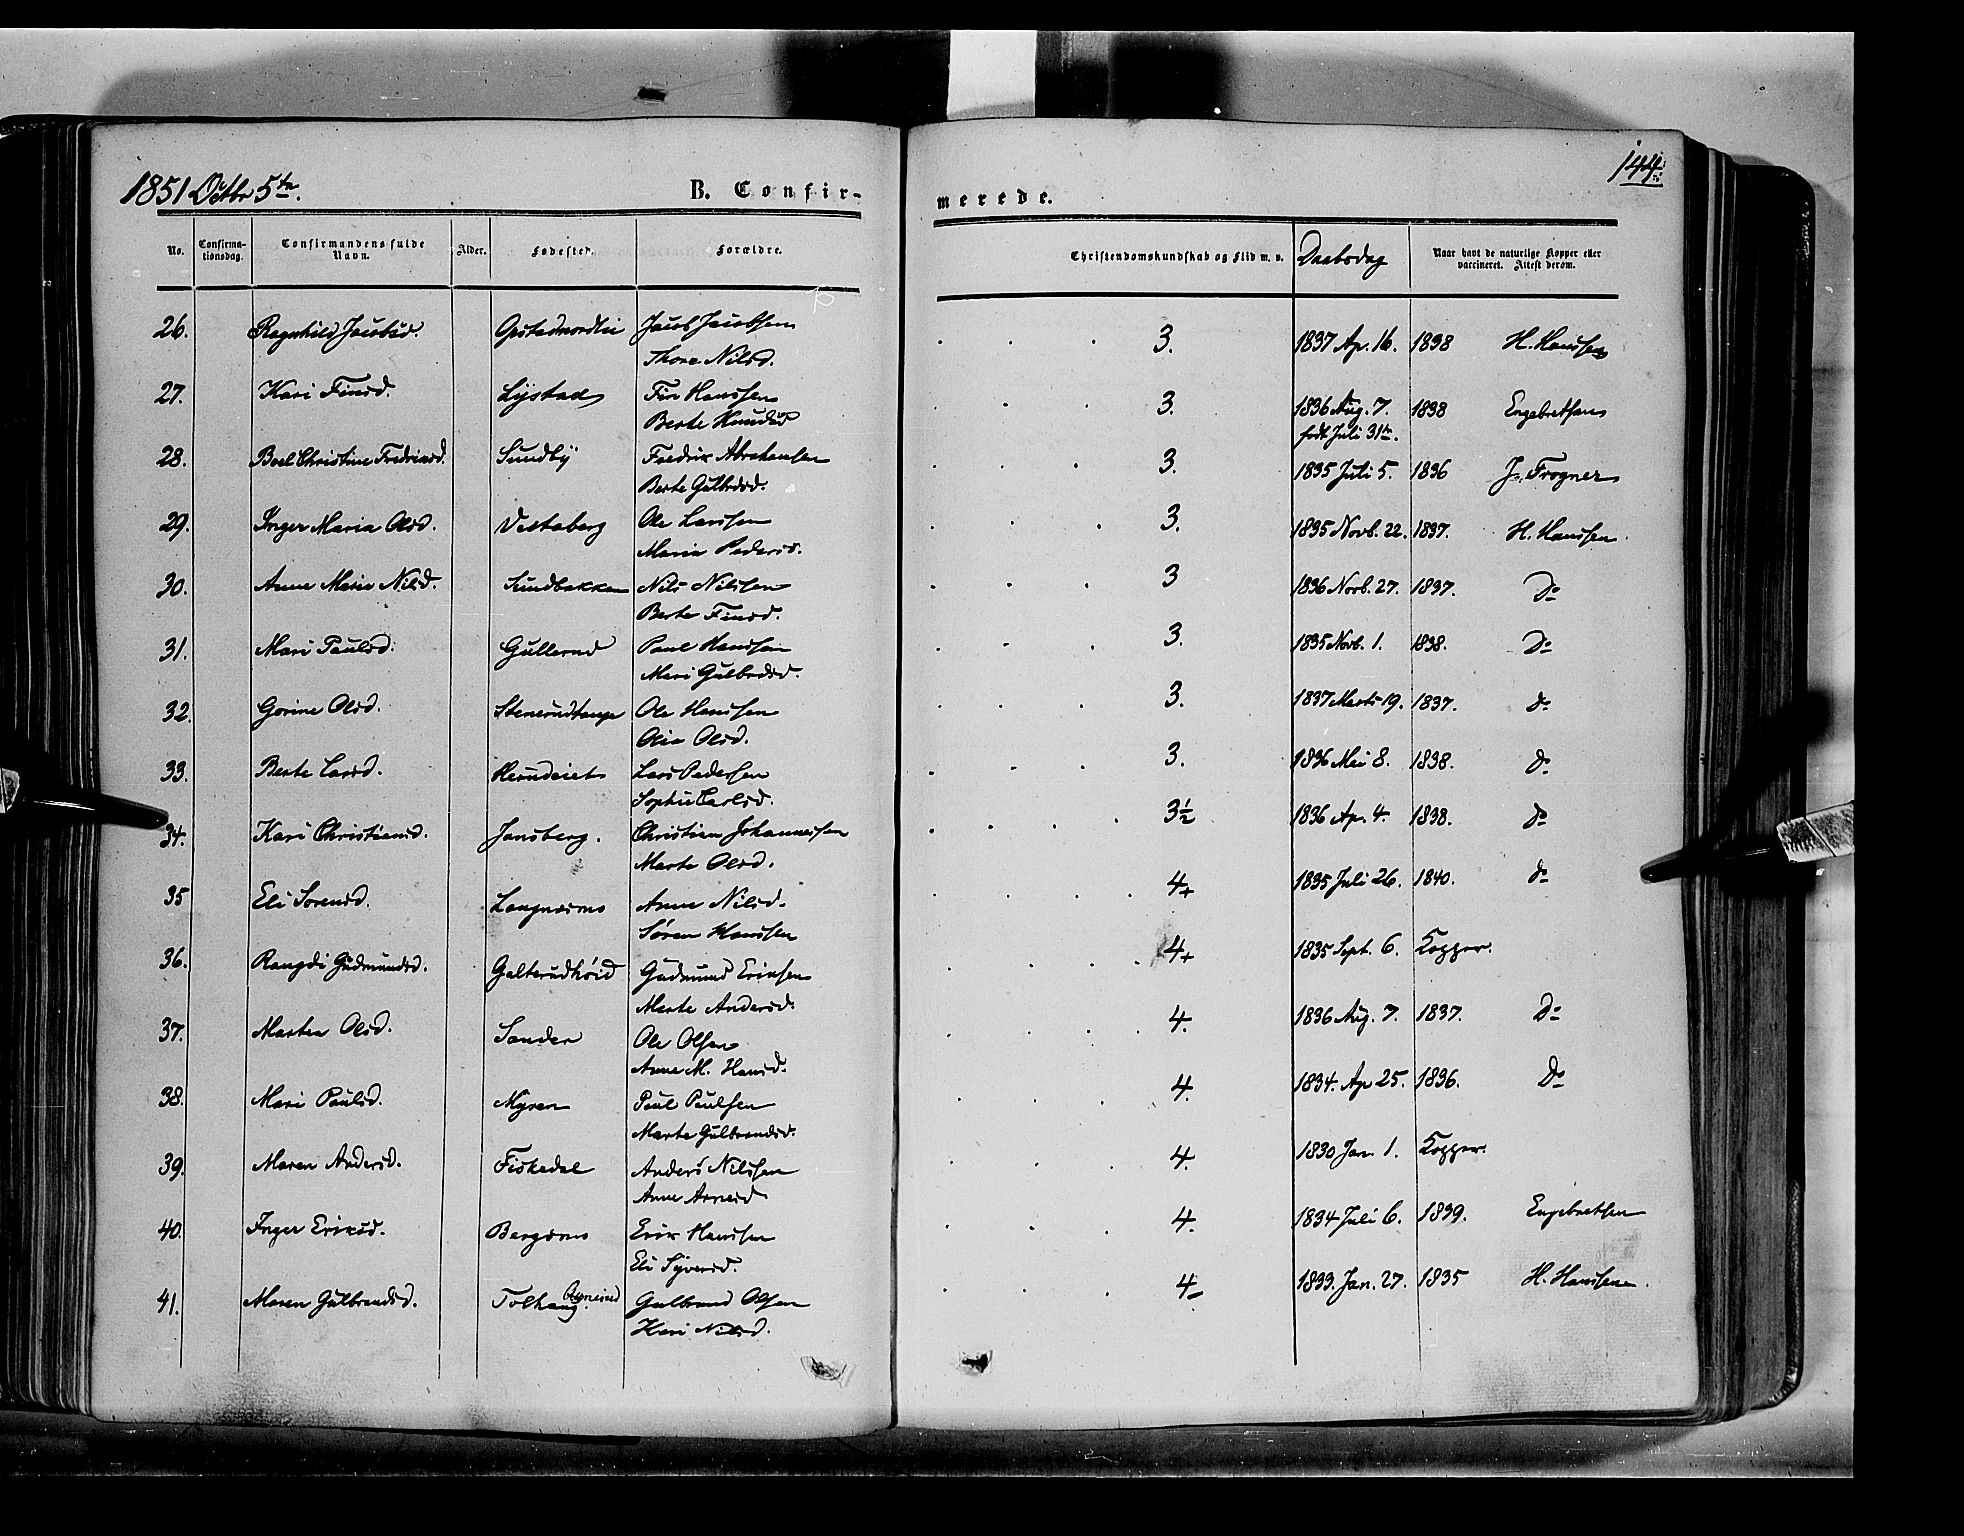 1851 Octbr 5te.
B. Confir-
merede.
144.
No. Confirma-tionsdag. Confirmandens fulde Navn. Alder. Fødested. Forældre. Christendomskundskab og Flid m. v. Daabsdag Naar havt de naturlige Kopper eller vaccineret. Attest derom.
26. Ragnhild Jacobsd. Opstadnordlie Jacob Jacobsen 3. 1837 Ap. 16. 1838 H. Hanssen
Thore Nilsd.
27. Kari Finsd. Lystad Fin Hanssen 3. 1836 Aug. 7. 1838 Engebretsen
Berte Knudsd født Juli 31te.
28. Boel Christine Fredriksd. Sundby Fredrik Abrahamsen 3. 1835 Juli 5. 1836 J. Frogner
Berte Gulbrdsd.
29. Inger Maria Olsd. Vestaberg Ole Larssen 3. 1835 Novb. 22. 1837. H. Hanssen.
Maria Pedersd.
30. Anne Maria Nilsd. Sundbakken Nils Nilssen 3 1836 Novb. 27. 1837. Do
Berte Finsd.
31. Mari Paulsd. Gullerud Paul Hanssen 3. 1835 Novb. 1. 1838. Do
Mari Gulbrdsd.
32. Gorine Olsd. Stenerudtange Ole Hanssen 3. 1837 Marts 19. 1837. do
Olia Olsd.
33. Berte Larsd. Lars Pedersen 3. 1836 Mai 8. 1838. do
Sophie Carlsd.
34. Kari Christiansd. Jonsberg. Christian Johannessen 3½ 1836 Ap. 4. 1838. do
Marte Olsd.
35 Eli Sorensd. Langnæsms Anne Nilsd. 4+ 1835 Juli 26. 1840. do
Søren Hanssen
36. Rangdi Gudmundsd. Galterudhøid Gudmund Eriksen 4+ 1835 Sept. 6. Kopper.
Marte Andersd.
37. Marthea Olsd. Sander Ole Olsen 4. 1836 Aug. 7. 1837. Do
Anne M. Hansd.
38. Mari Paulsd. Myren Paul Paulsen 4. 1834. Ap 25. 1836. Do
Marte Gulbrandsd.
39. Maren Andersd. Fiskedal Anders Nilssen 4. 1830 Jan. 1. Kopper.
Anne Arnesd
40. Inger Eriksd. Bergsms Erik Hanssen 4. 1834 Juli 6. 1839. Engebretsen
Eli Syversd.
41. Maren Gulbrandsd. Tolhaug. Gulbrand Olsen 4- 1833. Jan. 27. 1835 H. Hanssen.
Kari Nilsd.